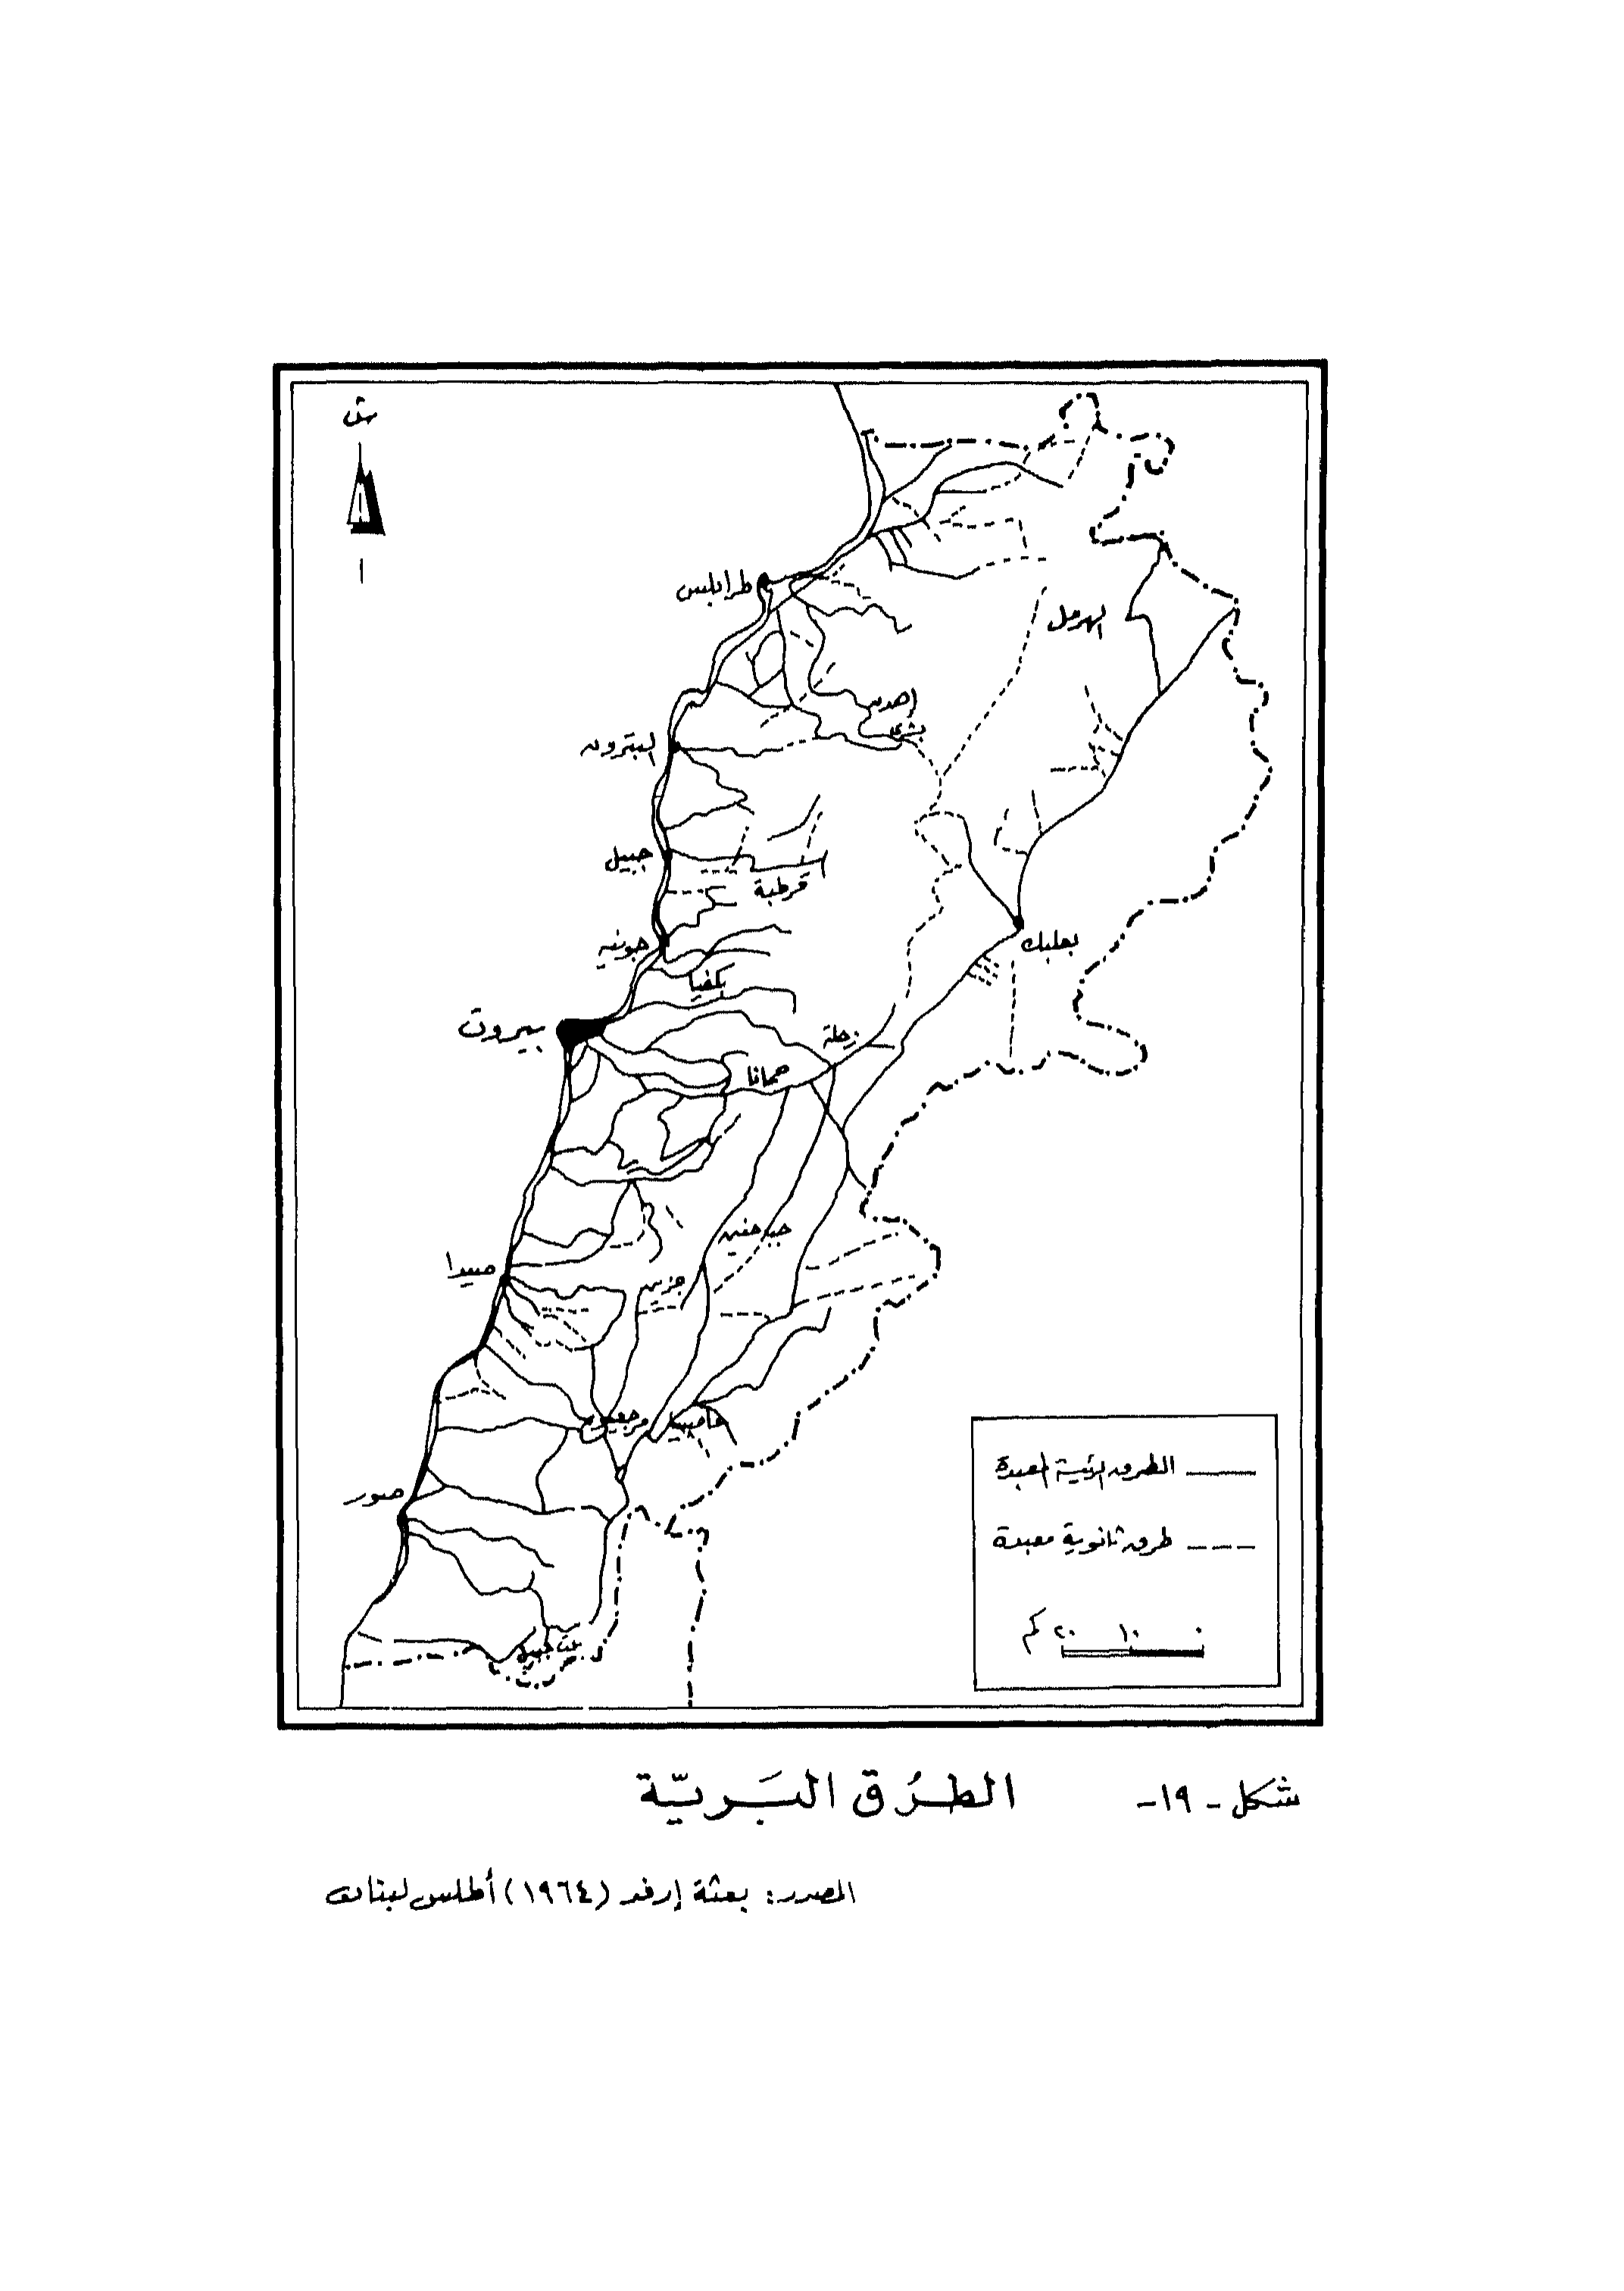 ش
طرابلس
الهرمل
اهدن
بشري
البترون
جبيل
قرطبة
جونيه
بعلبك
بكفيا
بيروت
زحلة
حمانا
جب جنين
صيدا
جزين
مرجعيون
حاصبيا
صور
بنت جبيل
الطرق الرئيسية المعبدة
طرق ثانوية معبدة
٠ ١٠ ٢٠ كم
شكل - ١٩- الطرُق البَريّة
المصدر: بعثة إرفد (١٩٦٤) أطلس لبنان